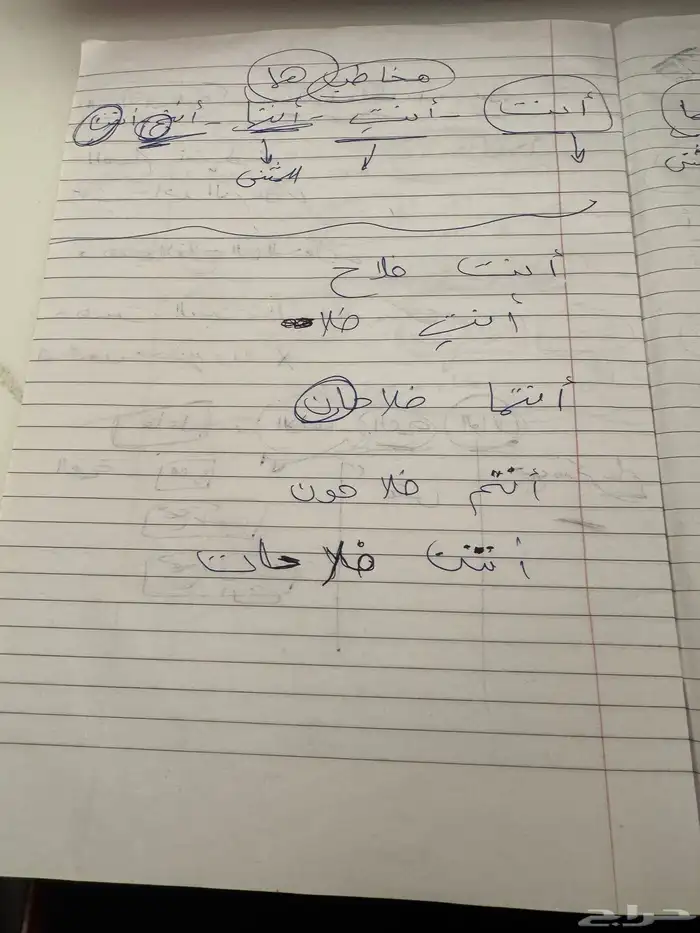 مخاطب هما
أنت - أنتي - أنتما - أنتم أنتن
المثنى
أنت فلاح
أنتي فلا
أنتما فلاحان
أنتم فلاحون
أنتن فلاحات
حراج